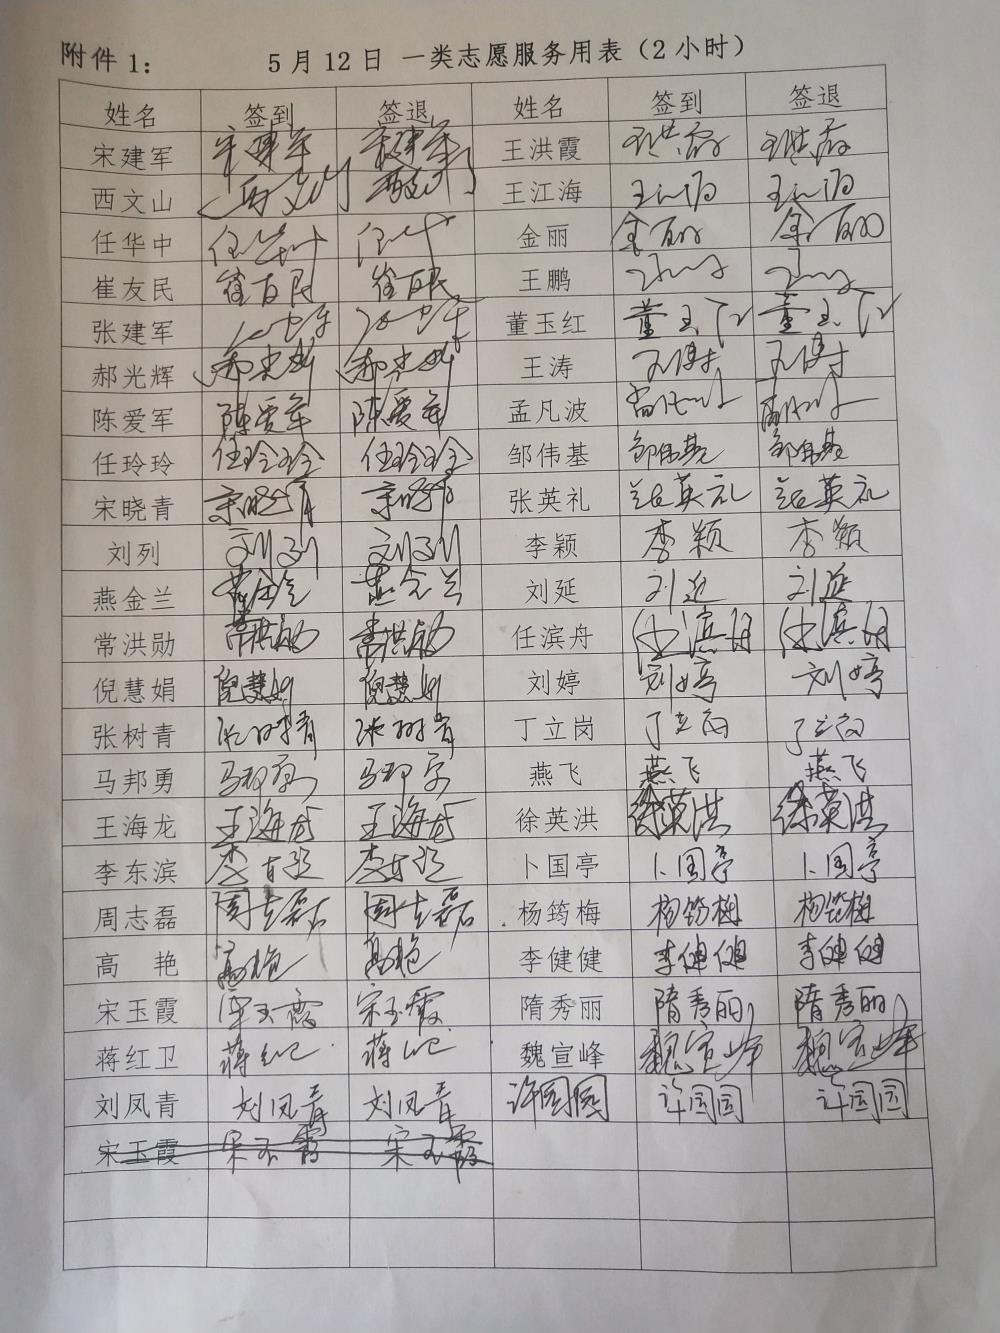 附件1：
5月12日 一类志愿服务用表（2小时）
姓名 签到 签退 姓名 签到 签退
宋建军 宋建军 宋建军 王洪霞 王洪霞 王洪霞
西文山 西文山 西文山 王江海 王江海 王江海
任华中 任华中 任华中 金丽 金丽 金丽
崔友民 崔友民 崔友民 王鹏 王鹏 王鹏
张建军 张建军 张建军 董玉红 董玉红 董玉红
郝光辉 郝光辉 郝光辉 王涛 王涛 王涛
陈爱军 陈爱军 陈爱军 孟凡波
任玲玲 任玲玲 任玲玲 邹伟基 邹伟基 邹伟基
宋晓青 宋晓青 宋晓青 张英礼 张英礼 张英礼
刘列 刘列 刘列 李颖 李颖 李颖
燕金兰 燕金兰 燕金兰 刘延 刘延 刘延
常洪勋 常洪勋 常洪勋 任滨舟 任滨舟 任滨舟
倪慧娟 倪慧娟 倪慧娟 刘婷 刘婷 刘婷
张树青 张树青 张树青 丁立岗 丁立岗 丁立岗
马邦勇 马邦勇 马邦勇 燕飞 燕飞 燕飞
王海龙 王海龙 王海龙 徐英洪 徐英洪 徐英洪
李东滨 李东滨 李东滨 卜国亭 卜国亭 卜国亭
周志磊 周志磊 周志磊 杨筠梅 杨筠梅 杨筠梅
高 艳 高艳 高艳 李健健 李健健 李健健
宋玉霞 宋玉霞 宋玉霞 隋秀丽 隋秀丽 隋秀丽
蒋红卫 蒋红卫 蒋红卫 魏宣峰 魏宣峰 魏宣峰
刘凤青 刘凤青 刘凤青 许园园 许园园 许园园
宋玉霞 宋玉霞 宋玉霞